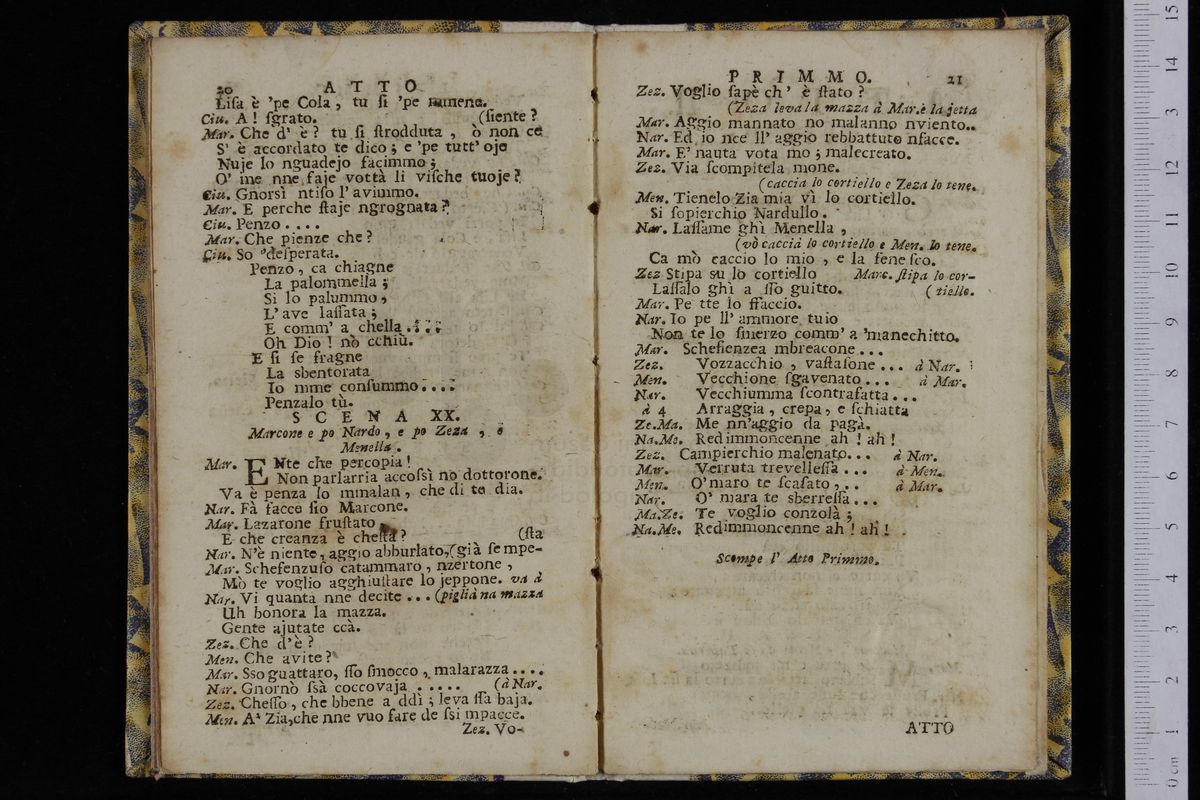 20 ATTO
Lisa è 'pe Cola, tu si 'pe mmene.
Ciu. A! sgrato. (siente?
Mar. Che d' è? tu si strodduta, ò non ce
S' è accordato te dico; e 'pe tutt' oje
Nuje lo nguadejo facimmo;
O' me nne faje vottà li vische tuoje?
Ciu. Gnorsì ntiso l' avimmo.
Mar. E perche staje ngrognata?
Ciu. Penzo....
Mar. Che pienze che?
Ciu. So desperata.
Penzo, ca chiagne
La palommella;
Si lo palummo,
L' ave lassata;
E comm' a chella....
Oh Dio! nò cchiù.
E si se fragne
La sbentorata
Io mme consummo....
Penzalo tù.
SCENA XX.
Marcone e po Nardo, e po Zeza, e
Menella.
Mar. ENte che percopia!
Non parlarria accossì no dottorone.
Va è penza lo mmalan, che di te dia.
Nar. Fà facce sio Marcone.
Mar. Lazarone frustato
E che creanza è chesta? (sta
Nar. N'è niente, aggio abburlato, (già sempe-
Mar. Schefenzuso catammaro, nzertone,
Mò te voglio agghiustare lo jeppone. va à
Nar. Vi quanta nne decite... (piglià na mazza
Uh bonora la mazza.
Gente ajutate ccà.
Zez. Che d'è?
Men. Che avite?
Mar. Sso guattaro, sso smocco, malarazza....
Nar. Gnornò ssà coccovaja..... (à Nar.
Zez. Chesso, che bbene a ddì; leva ssa baja.
Men. A' Zia, che nne vuo fare de ssi mpacce.
Zez. Vo-
PRIMMO. 21
Zez. Voglio sapè ch' è stato?
(Zeza leva la mazza à Mar. è la jetta
Mar. Aggio mannato no malanno nviento..
Nar. Ed io nce ll' aggio rebbattuto nfacce.
Mar. E' nauta vota mo; malecreato.
Zez. Via scompitela mone.
(caccia lo cortiello e Zeza lo tene.
Men. Tienelo Zia mia vì lo cortiello.
Si sopierchio Nardullo.
Nar. Lassame ghì Menella,
(vò caccià lo cortiello e Men. lo tene.
Ca mò caccio lo mio, e la fenesco.
Zez Stipa su lo cortiello Marc. stipa lo cor-
Lassalo ghì a sso guitto. (tiello.
Mar. Pe tte lo sfaccio.
Nar. Io pe ll' ammore tuio
Non te lo smerzo comm' a 'manechitto.
Mar. Schefienzea mbreacone...
Zez. Vozzacchio, vastasone... à Nar.
Men. Vecchione sgavenato... à Mar.
Nar. Vecchiumma scontrafatta...
à 4 Arraggia, crepa, e schiatta
Ze.Ma. Me nn'aggio da pagà.
Na.Me. Redimmoncenne ah! ah!
Zez. Campierchio malenato... à Nar.
Mar. Verruta trevellessa... à Men.
Men. O'maro te scasato,.. à Mar.
Nar. O' mara te sberressa...
Ma.Ze. Te voglio conzolà;
Na.Me. Redimmoncenne ah! ah!
Scompe l' Atto Primmo.
ATTO